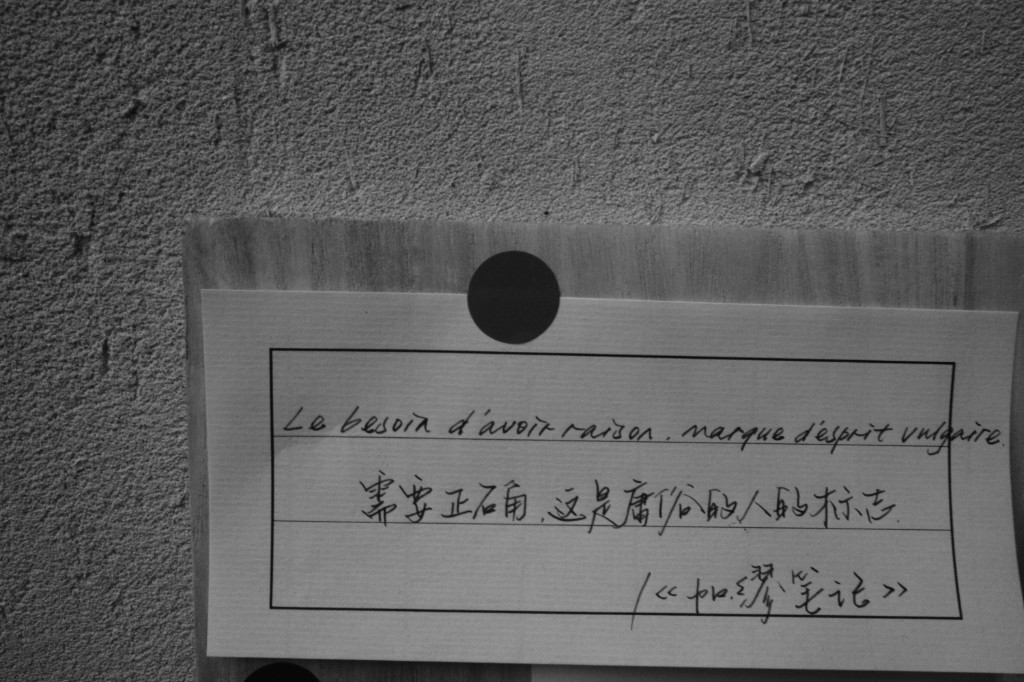 Le besoin d'avoir raison. marque d'esprit vulgaire.
需要正确,这是庸俗的人的标志.
/《加缪笔记》